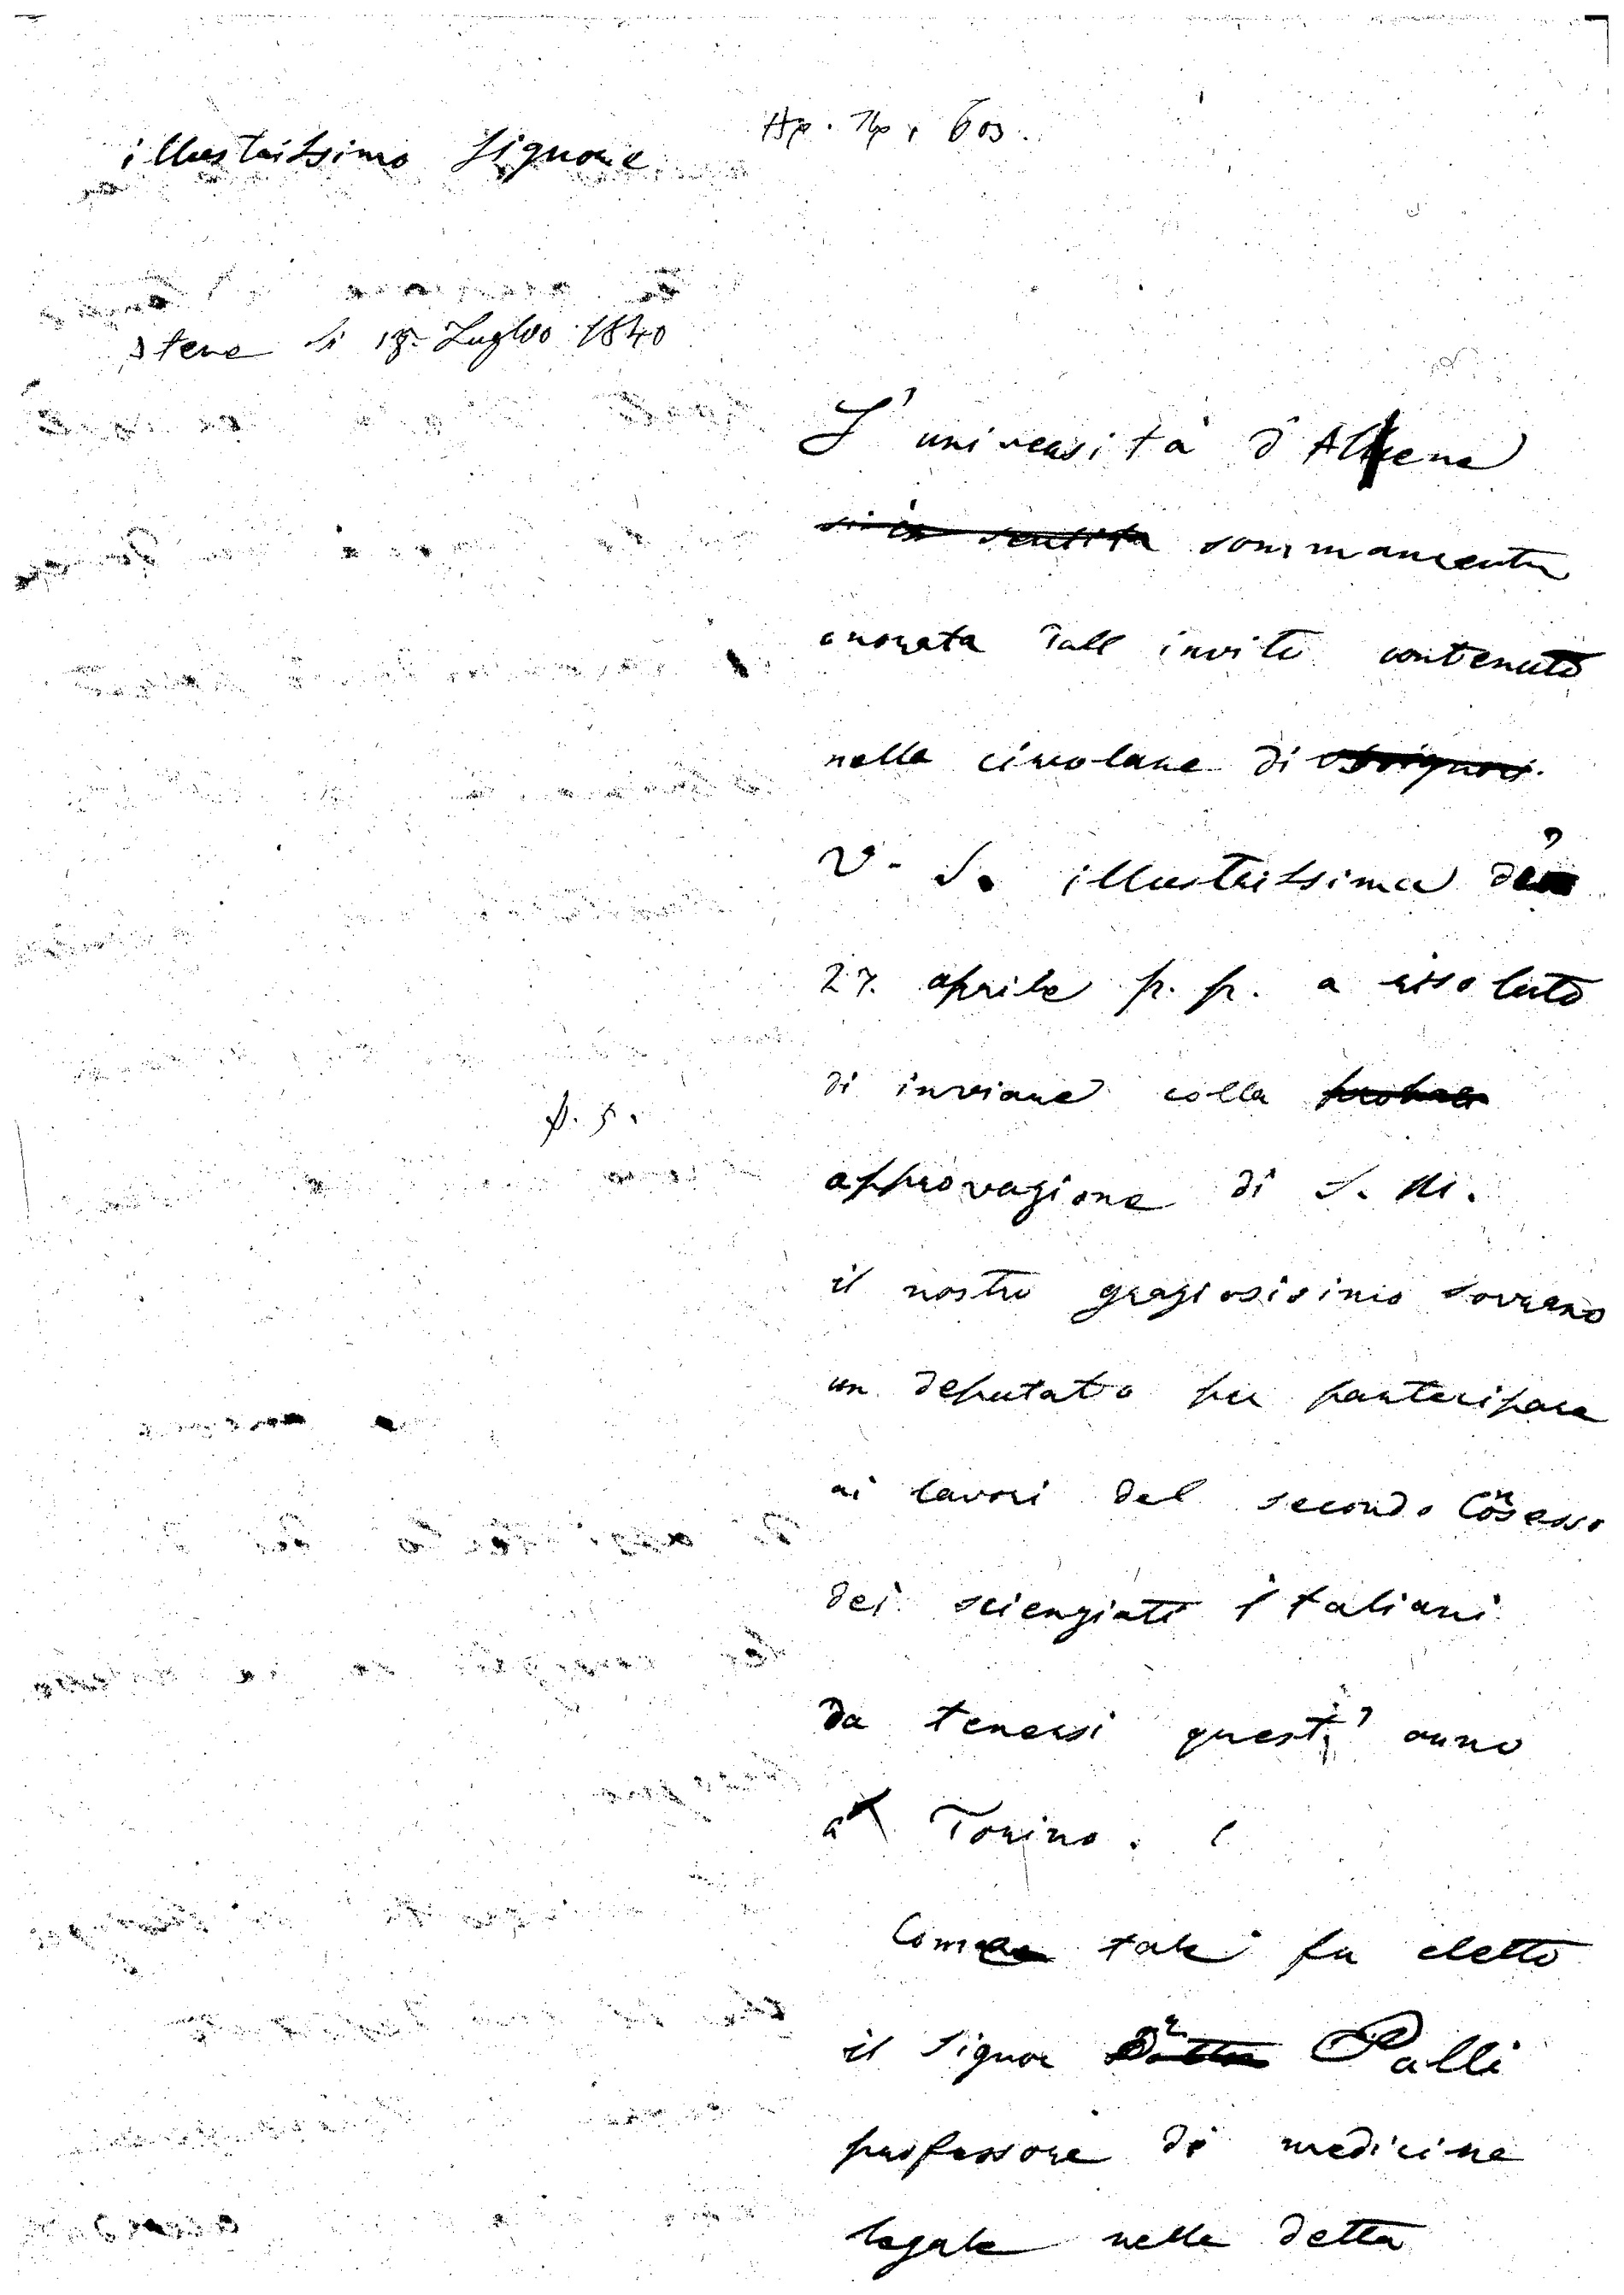 illustrissimo Signore
Αρ. Πρ. 603.
Atene li 18. Luglio 1840
L' università d' Atene
sommamente
onorata dall invito contenuto
nella circolare di
V. S. illustrissima dei
27. aprile p. p. a risoluto
di inviare colla
approvazione di S. M.
il nostro graziosisimo sovrano
un deputato per partecipare
ai lavori del secondo Consesso
dei scienziati italiani
da tenersi quest' anno
a Torino.
Come tale fu eletto
il Signor Dr Palli
professore di medicina
legale nella detta